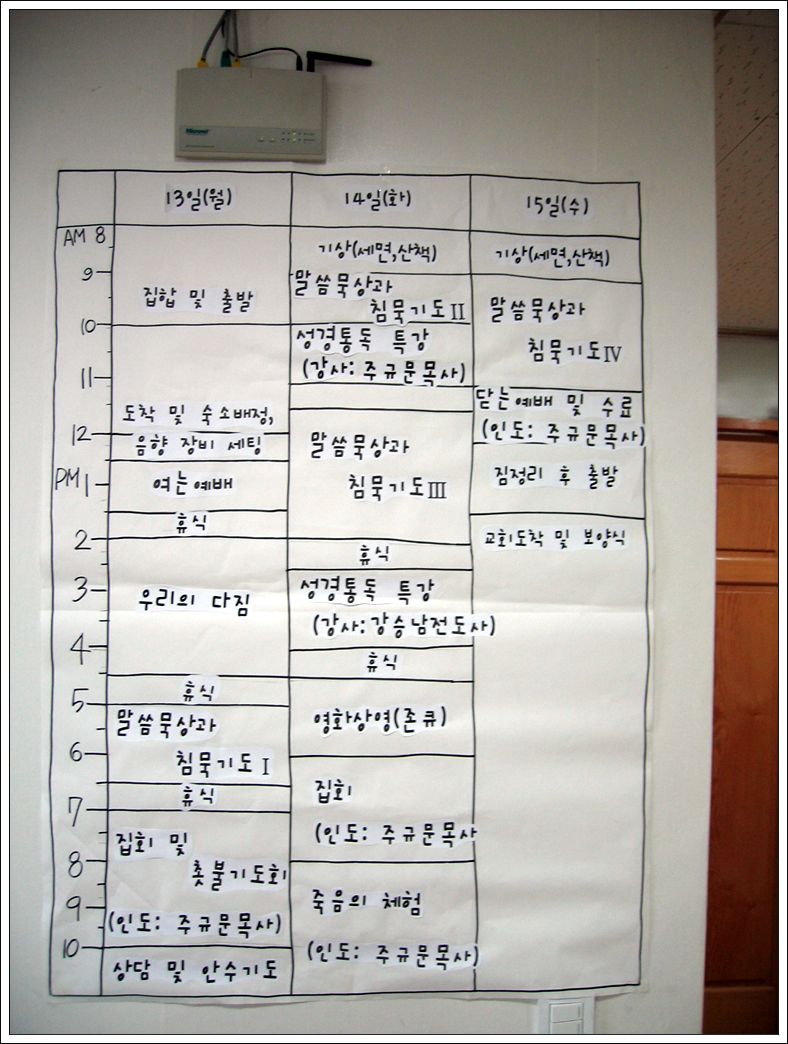 Micronet
13일(월)
14일(화)
15일(수)
AM 8
9
10
11
12
PM 1
2
3
4
5
6
7
8
9
10
집합 및 출발
도착 및 숙소배정,
음향 장비 세팅
여는예배
휴식
우리의 다짐
휴식
말씀묵상과
침묵기도 I
휴식
집회 및
촛불기도회
(인도: 주규문목사)
상담 및 안수기도
기상(세면,산책)
말씀묵상과
침묵기도 II
성경통독 특강
(강사: 주규문목사)
말씀묵상과
침묵기도 III
휴식
성경통독 특강
(강사:강승남전도사)
휴식
영화상영(존큐)
집회
(인도: 주규문목사
죽음의 체험
(인도: 주규문목사)
기상(세면,산책)
말씀묵상과
침묵기도 IV
닫는예배 및 수료
(인도: 주규문목사)
짐정리 후 출발
교회도착 및 보양식